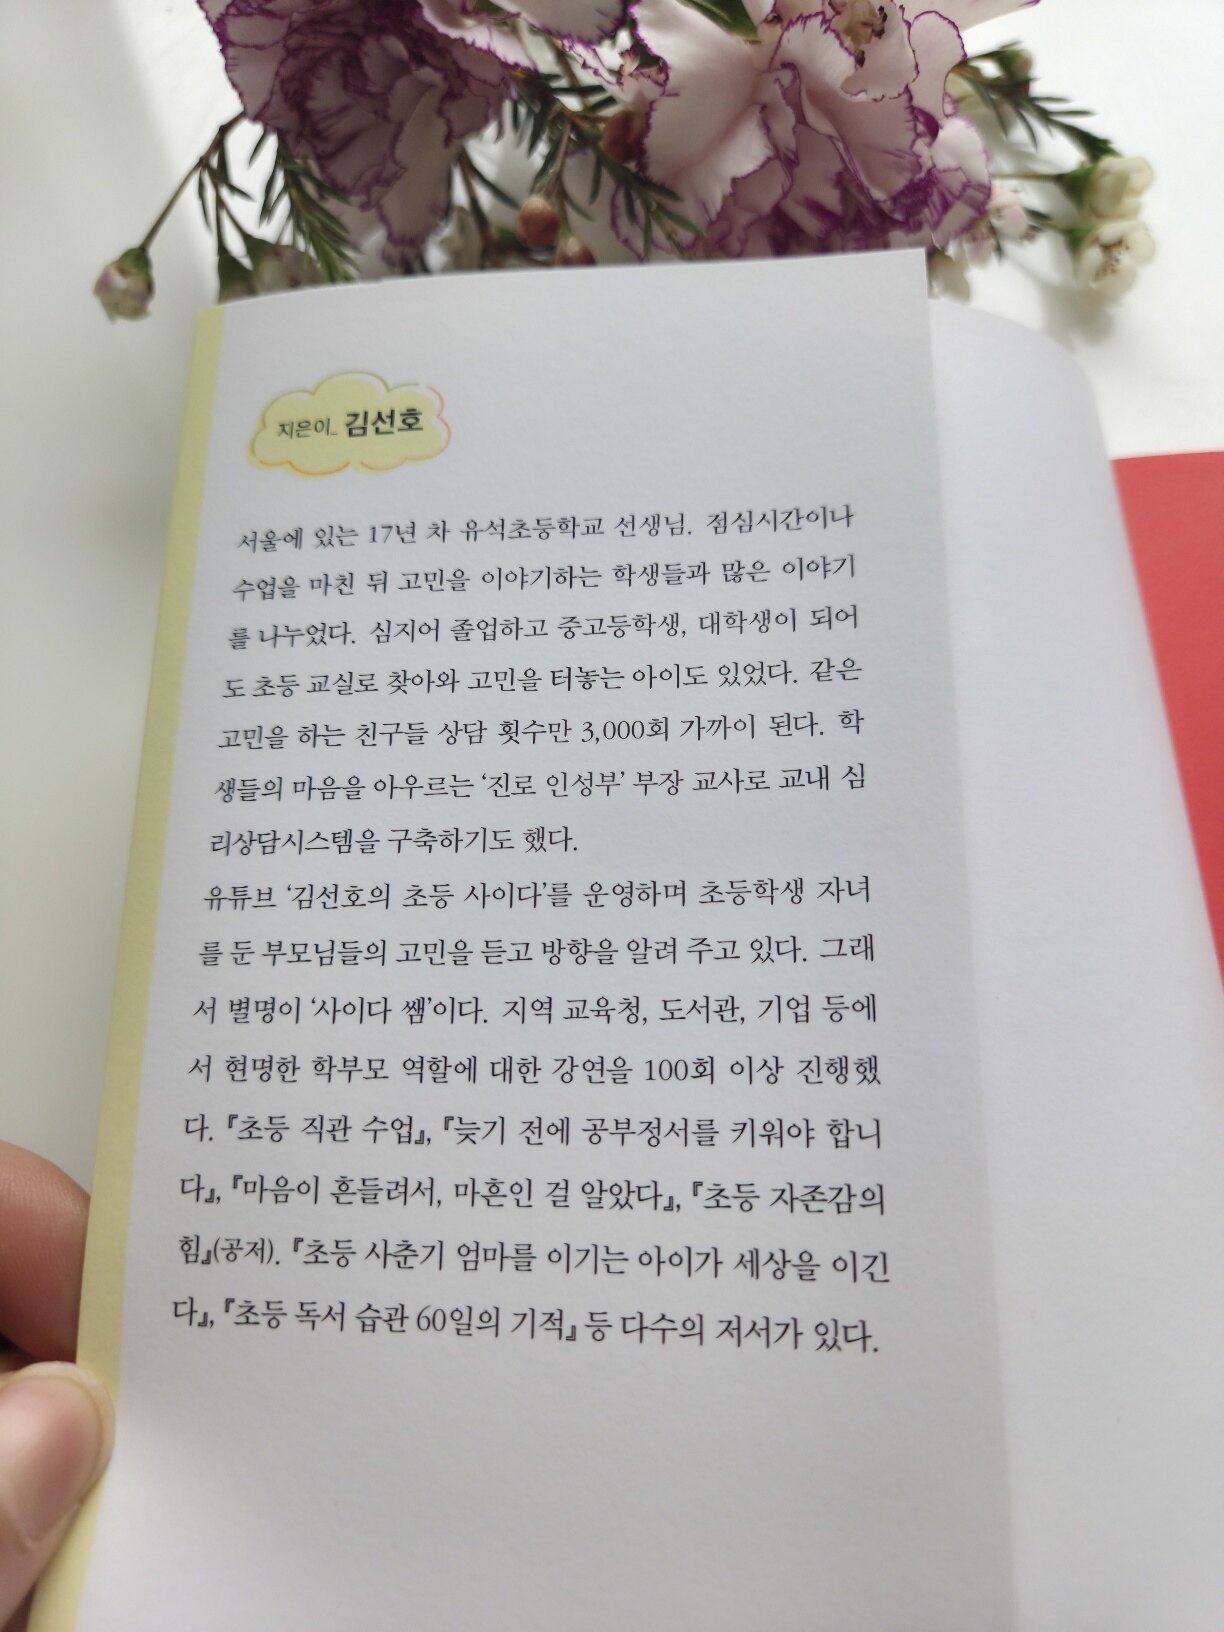 지은이_ 김선호
서울에 있는 17년 차 유석초등학교 선생님. 점심시간이나
수업을 마친 뒤 고민을 이야기하는 학생들과 많은 이야기
를 나누었다. 심지어 졸업하고 중고등학생, 대학생이 되어
도 초등 교실로 찾아와 고민을 터놓는 아이도 있었다. 같은
고민을 하는 친구들 상담 횟수만 3,000회 가까이 된다. 학
생들의 마음을 아우르는 ‘진로 인성부’ 부장 교사로 교내 심
리상담시스템을 구축하기도 했다.
유튜브 ‘김선호의 초등 사이다’를 운영하며 초등학생 자녀
를 둔 부모님들의 고민을 듣고 방향을 알려 주고 있다. 그래
서 별명이 ‘사이다 쌤’이다. 지역 교육청, 도서관, 기업 등에
서 현명한 학부모 역할에 대한 강연을 100회 이상 진행했
다. 『초등 직관 수업』, 『늦기 전에 공부정서를 키워야 합니
다』, 『마음이 흔들려서, 마흔인 걸 알았다』, 『초등 자존감의
힘』(공저). 『초등 사춘기 엄마를 이기는 아이가 세상을 이긴
다』, 『초등 독서 습관 60일의 기적』 등 다수의 저서가 있다.